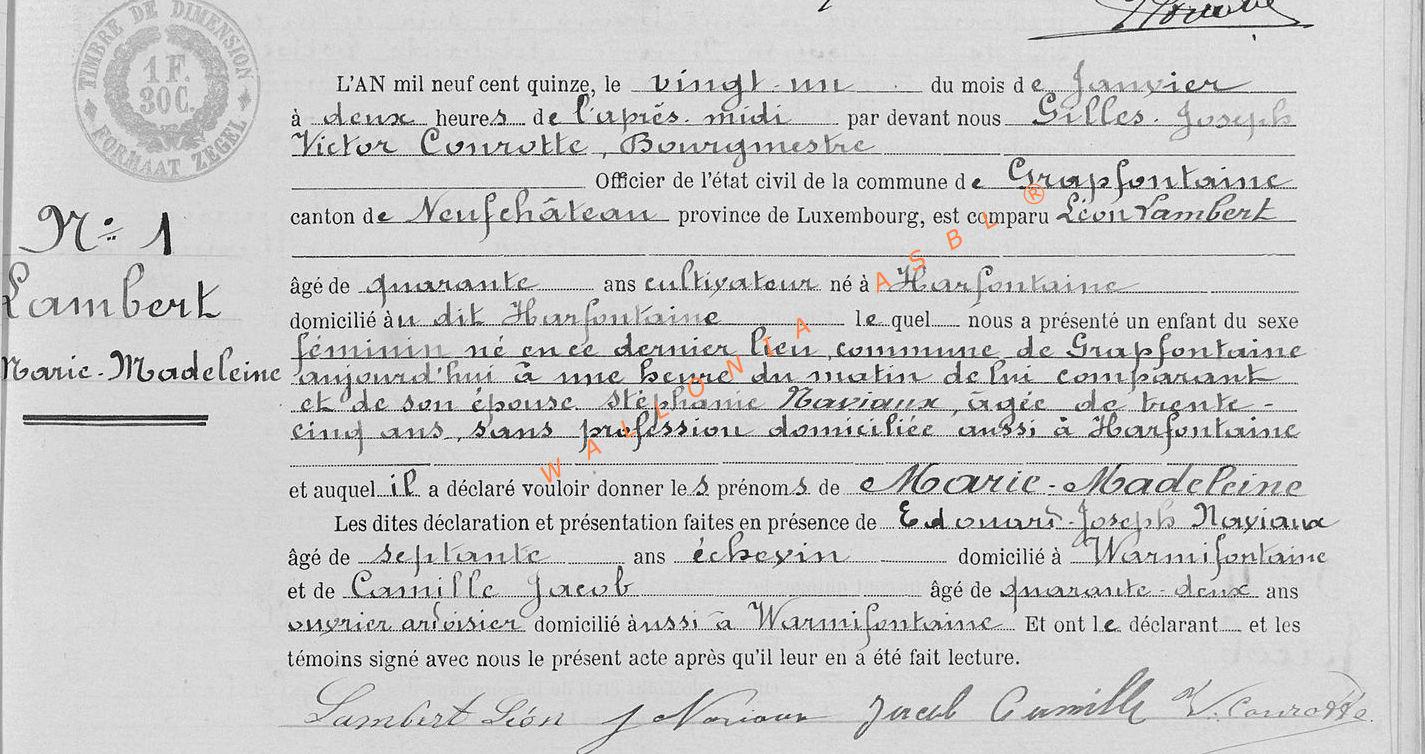 TIMBRE DE DIMENSION
1 F.
30 C.
FORMAAT ZEGEL
L'AN mil neuf cent quinze, le vingt-un du mois de Janvier
à deux heures de l'après-midi par devant nous Gilles-Joseph
Victor Conrotte, Bourgmestre
Officier de l'état civil de la commune de Grapfontaine
canton de Neufchâteau province de Luxembourg, est comparu Léon Lambert
N° 1
Lambert
Marie-Madeleine
âgé de quarante ans cultivateur né à Harfontaine
domicilié au dit Harfontaine le quel nous a présenté un enfant du sexe
féminin né en ce dernier lieu, commune de Grapfontaine
aujourd'hui à une heure du matin de lui comparant
et de son épouse Stéphanie Naviaux, âgée de trente-
cinq ans, sans profession domiciliée aussi à Harfontaine
et auquel il a déclaré vouloir donner les prénoms de Marie-Madeleine
Les dites déclaration et présentation faites en présence de Edouard-Joseph Naviaux
âgé de septante ans échevin domicilié à Warmifontaine
et de Camille Jacob âgé de quarante-deux ans
ouvrier ardoisier domicilié aussi à Warmifontaine Et ont le déclarant et les
témoins signé avec nous le présent acte après qu'il leur en a été fait lecture.
Lambert Léon J Naviaux Jacob Camille V. Conrotte
WALLONIA ASBL ®